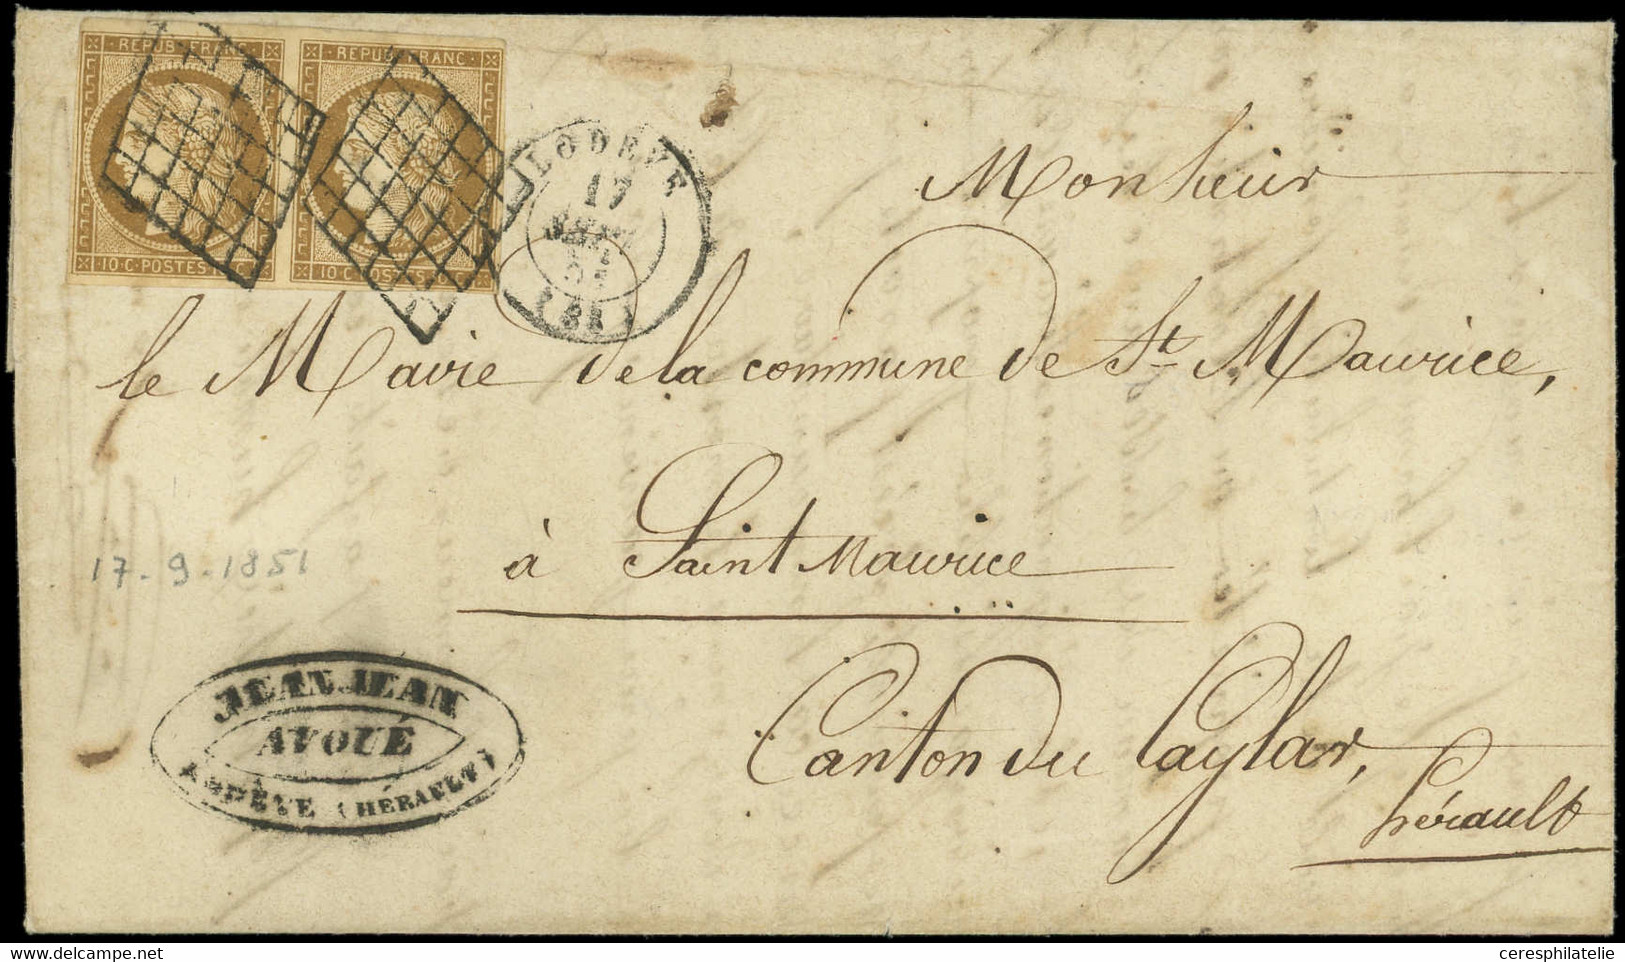 REPUB. FRANC.
REPUB. FRANC.
10·C·POSTES·10·C
10·C·POSTES·10·C
LODÈVE
17
SEPT.
51
Monsieur
le Maire de la commune de St Maurice,
à Saint Maurice
17-9-1851
Canton du Caylar,
hérault
JEANJEAN
AVOUÉ
LODÈVE (HÉRAULT)
www.delcampe.net
ceresphilatelie